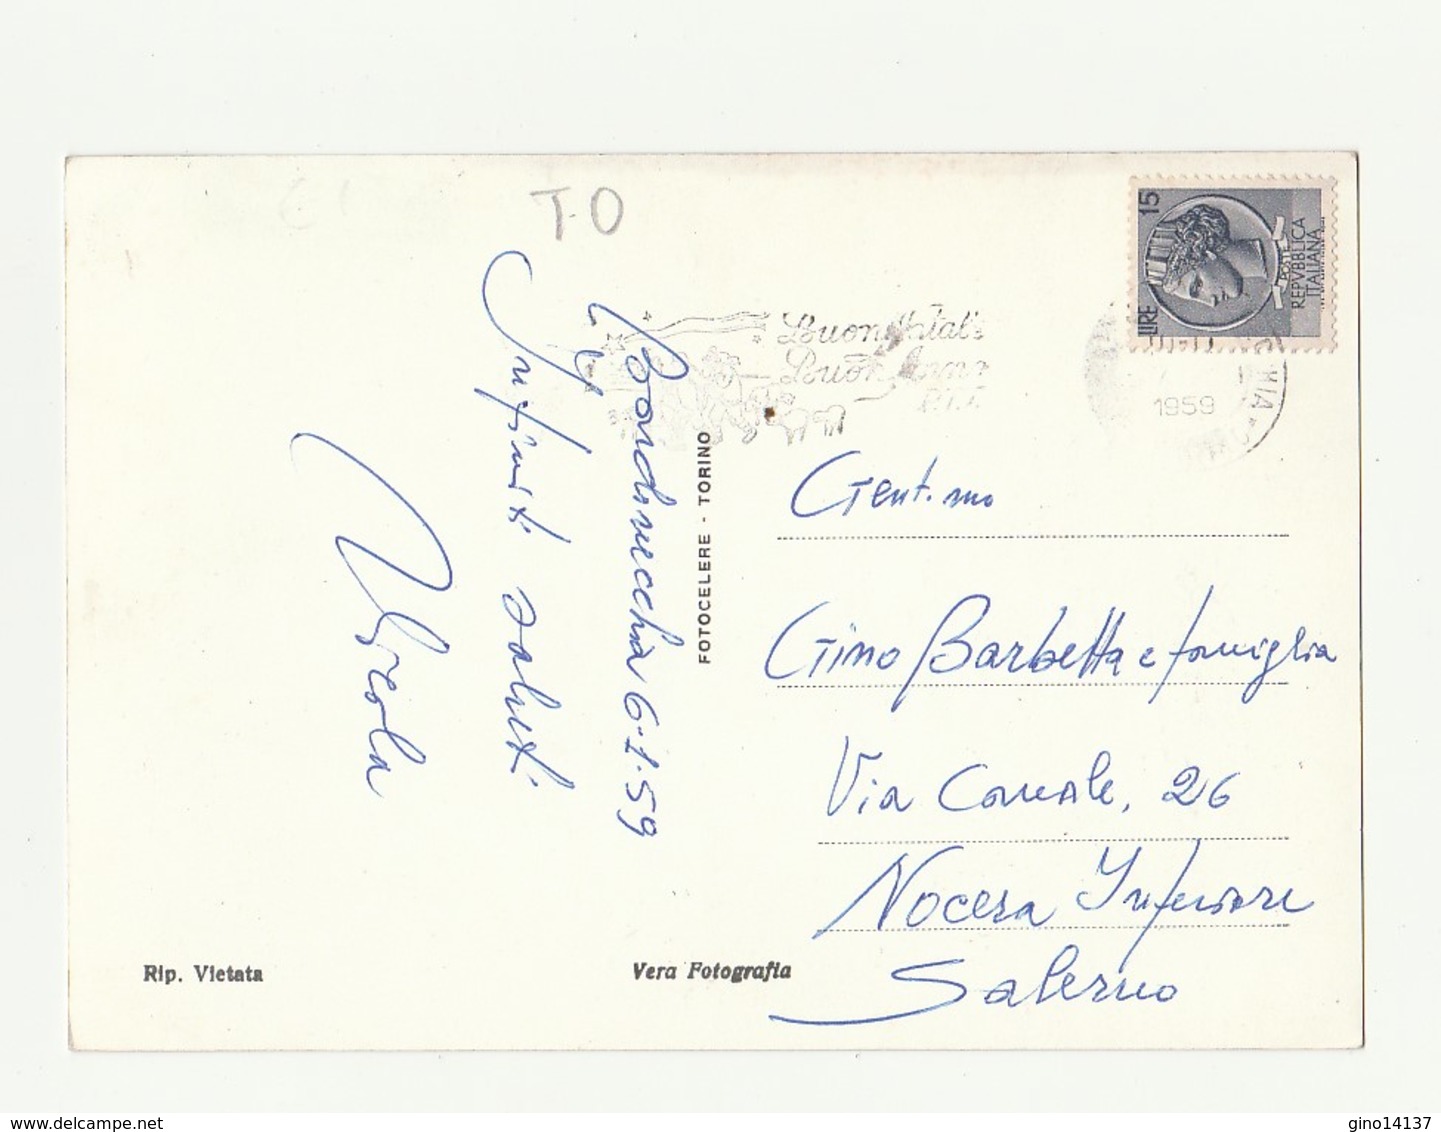 T.O
Bardonecchia 6.1.59
Infiniti saluti
Nicola
FOTOCELERE - TORINO
Rip. Vietata
Vera Fotografia
LIRE 15
POSTE
REPVBBLICA
ITALIANA
Buon Natale
Buon Anno
1959
Gent.mo
Gino Barbetta e famiglia
Via Canale, 26
Nocera Inferiore
Salerno
www.delcampe.net
gino14137